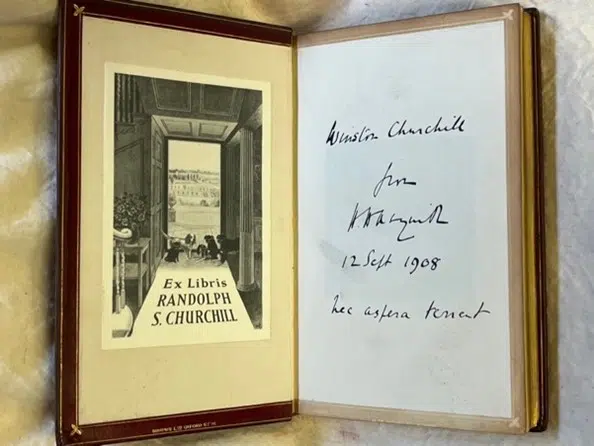 Ex Libris
RANDOLPH
S. CHURCHILL
Winston Churchill
from
H H Asquith
12 Sept 1908
nec aspera terrent